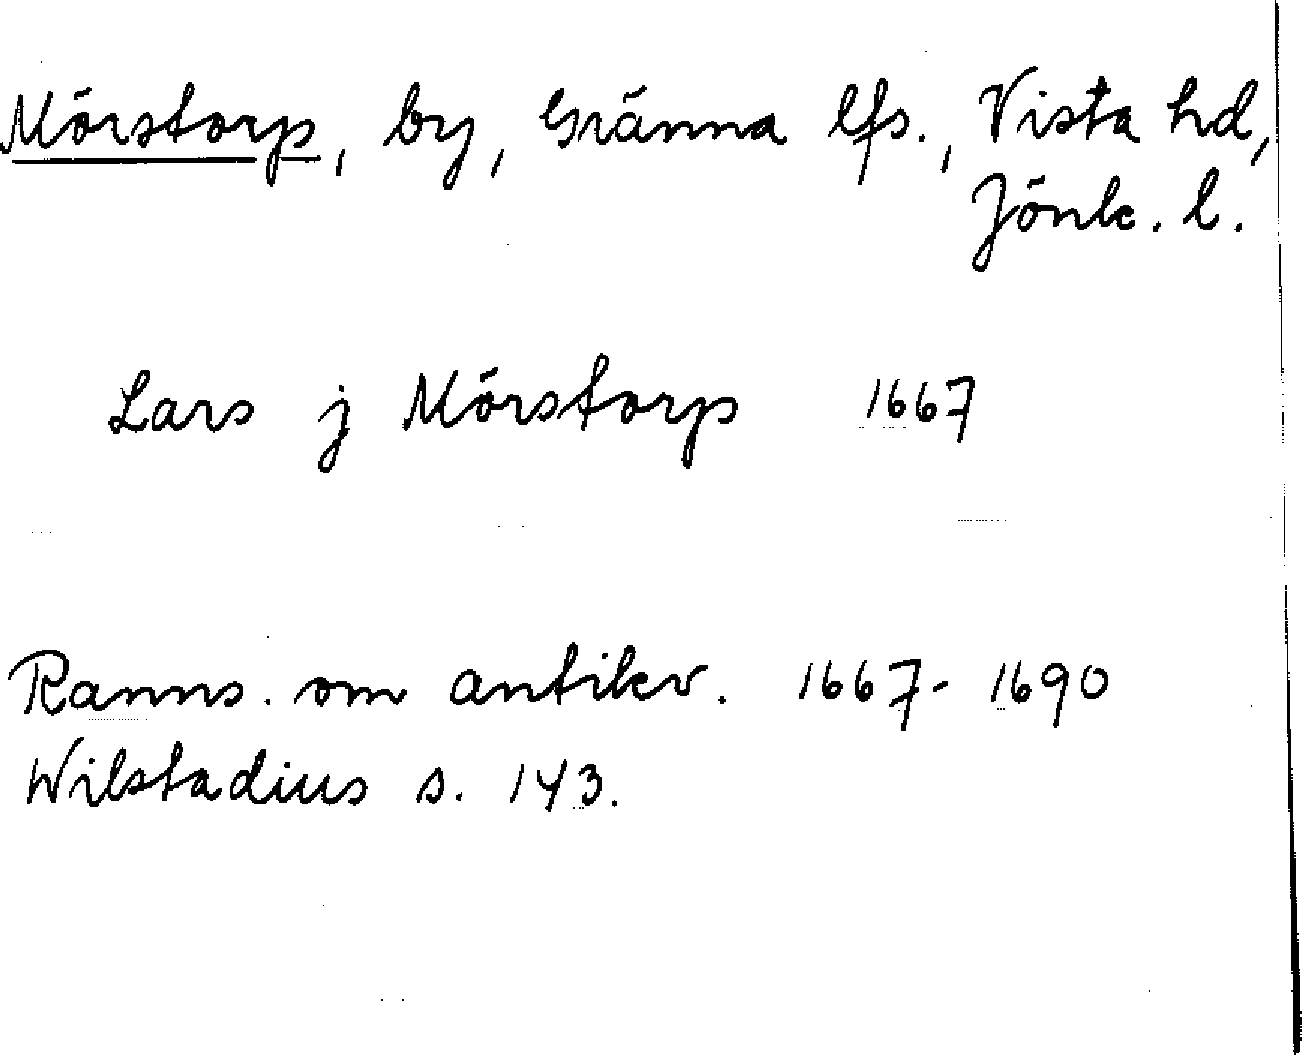 Mörstorp, by, Gränna lfs., Vista hd,
Jönk. l.
Lars j Mörstorp 1667
Ranns. om antikv. 1667- 1690
Wilstadius s. 143.